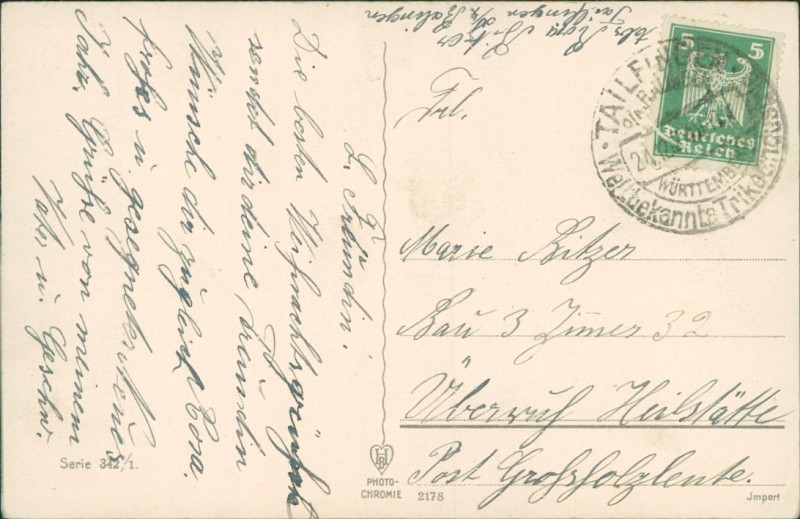 L. Freundin!
Die besten Weihnachtsgrüße
sendet dir deine Freundin
Rosa.
Wünsche dir zugleich
frohes u. gesegnetes Neues
Jahr. Grüße von meinem
Vater u. Geschw.
Serie 342/1.
Abs. Rosa Bitzer
Tailfingen O/A Balingen
5 5
Deutsches
Reich
TAILFINGEN
O/A BALINGEN
WÜRTTEMB
Weltbekannte Trikot
Frl.
Marie Bitzer
Bau 3 Zimer 32
Überruh Heilstätte
Post Großholzleute.
HB
PHOTO-
CHROMIE 2178
Jmport